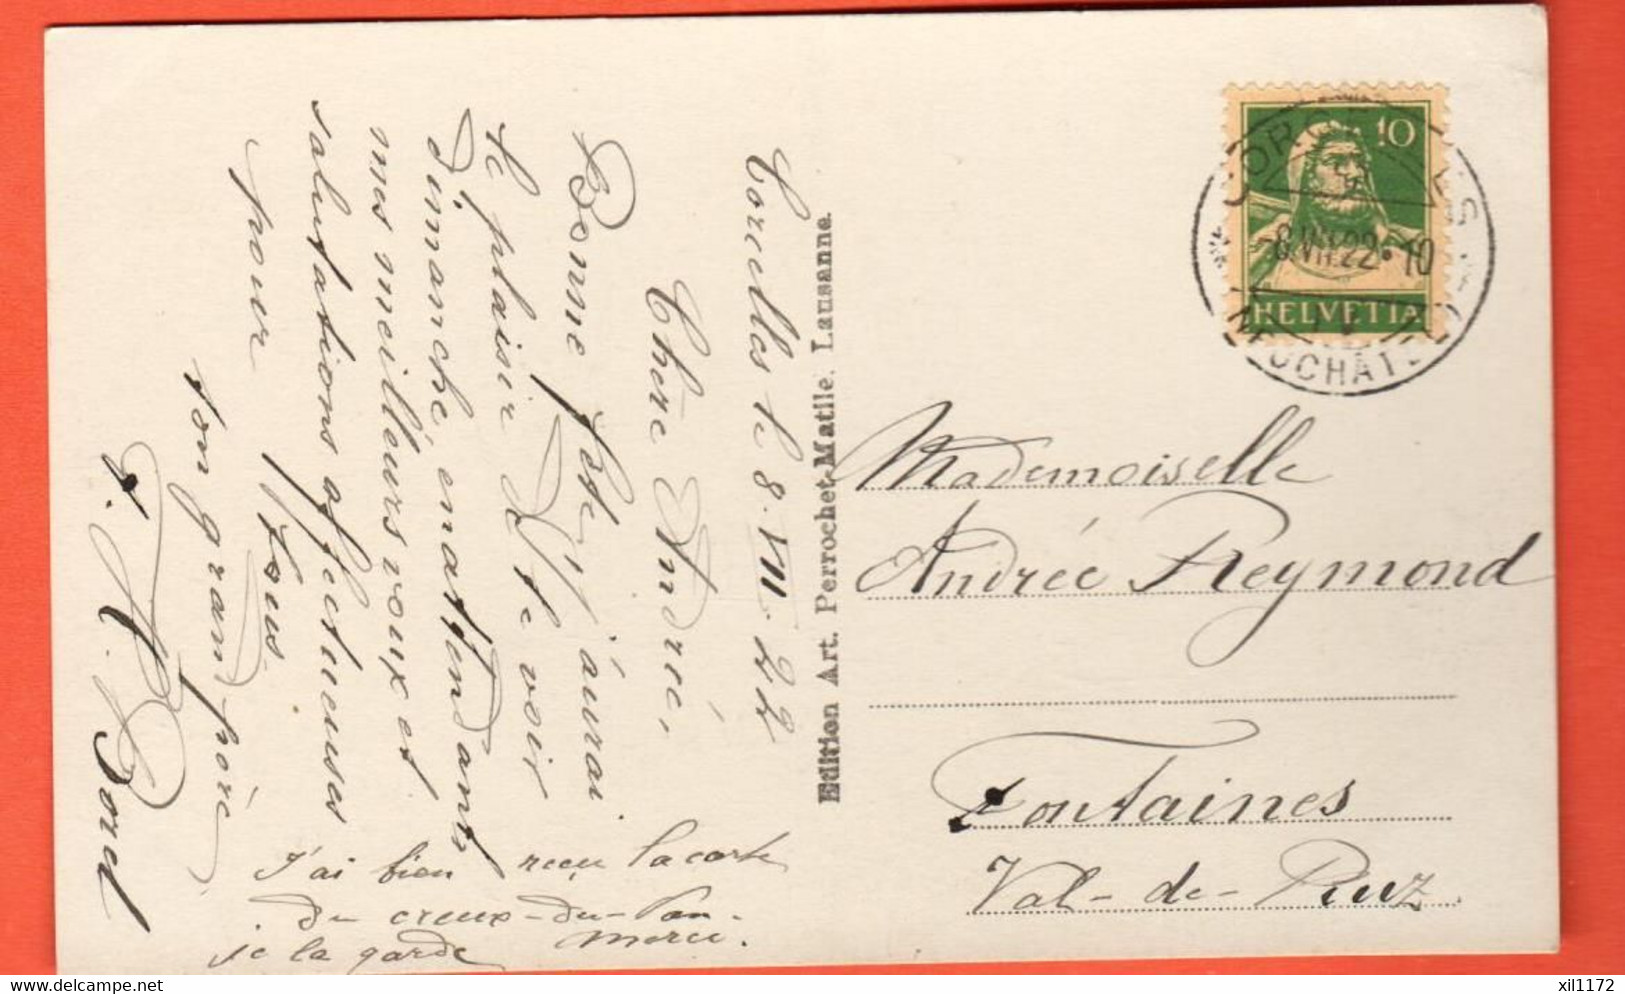 Corcelles le 8. VII. 22
Chère Andrée,
Bonne fête, j'aurai
le plaisir de te voir
dimanche, en attendant
mes meilleurs voeux et
salutations affectueuses
pour tous.
ton grand père,
H. Borel
J'ai bien reçu la carte
du creux-du-Van.
je la garde merci.
Edition Art. Perrochet-Matile. Lausanne.
10
HELVETIA
CORCELLES
-8.VII.22.10
NEUCHÂTEL
Mademoiselle
Andrée Reymond
Fontaines
Val-de-Ruz
delcampe.net
xil1172